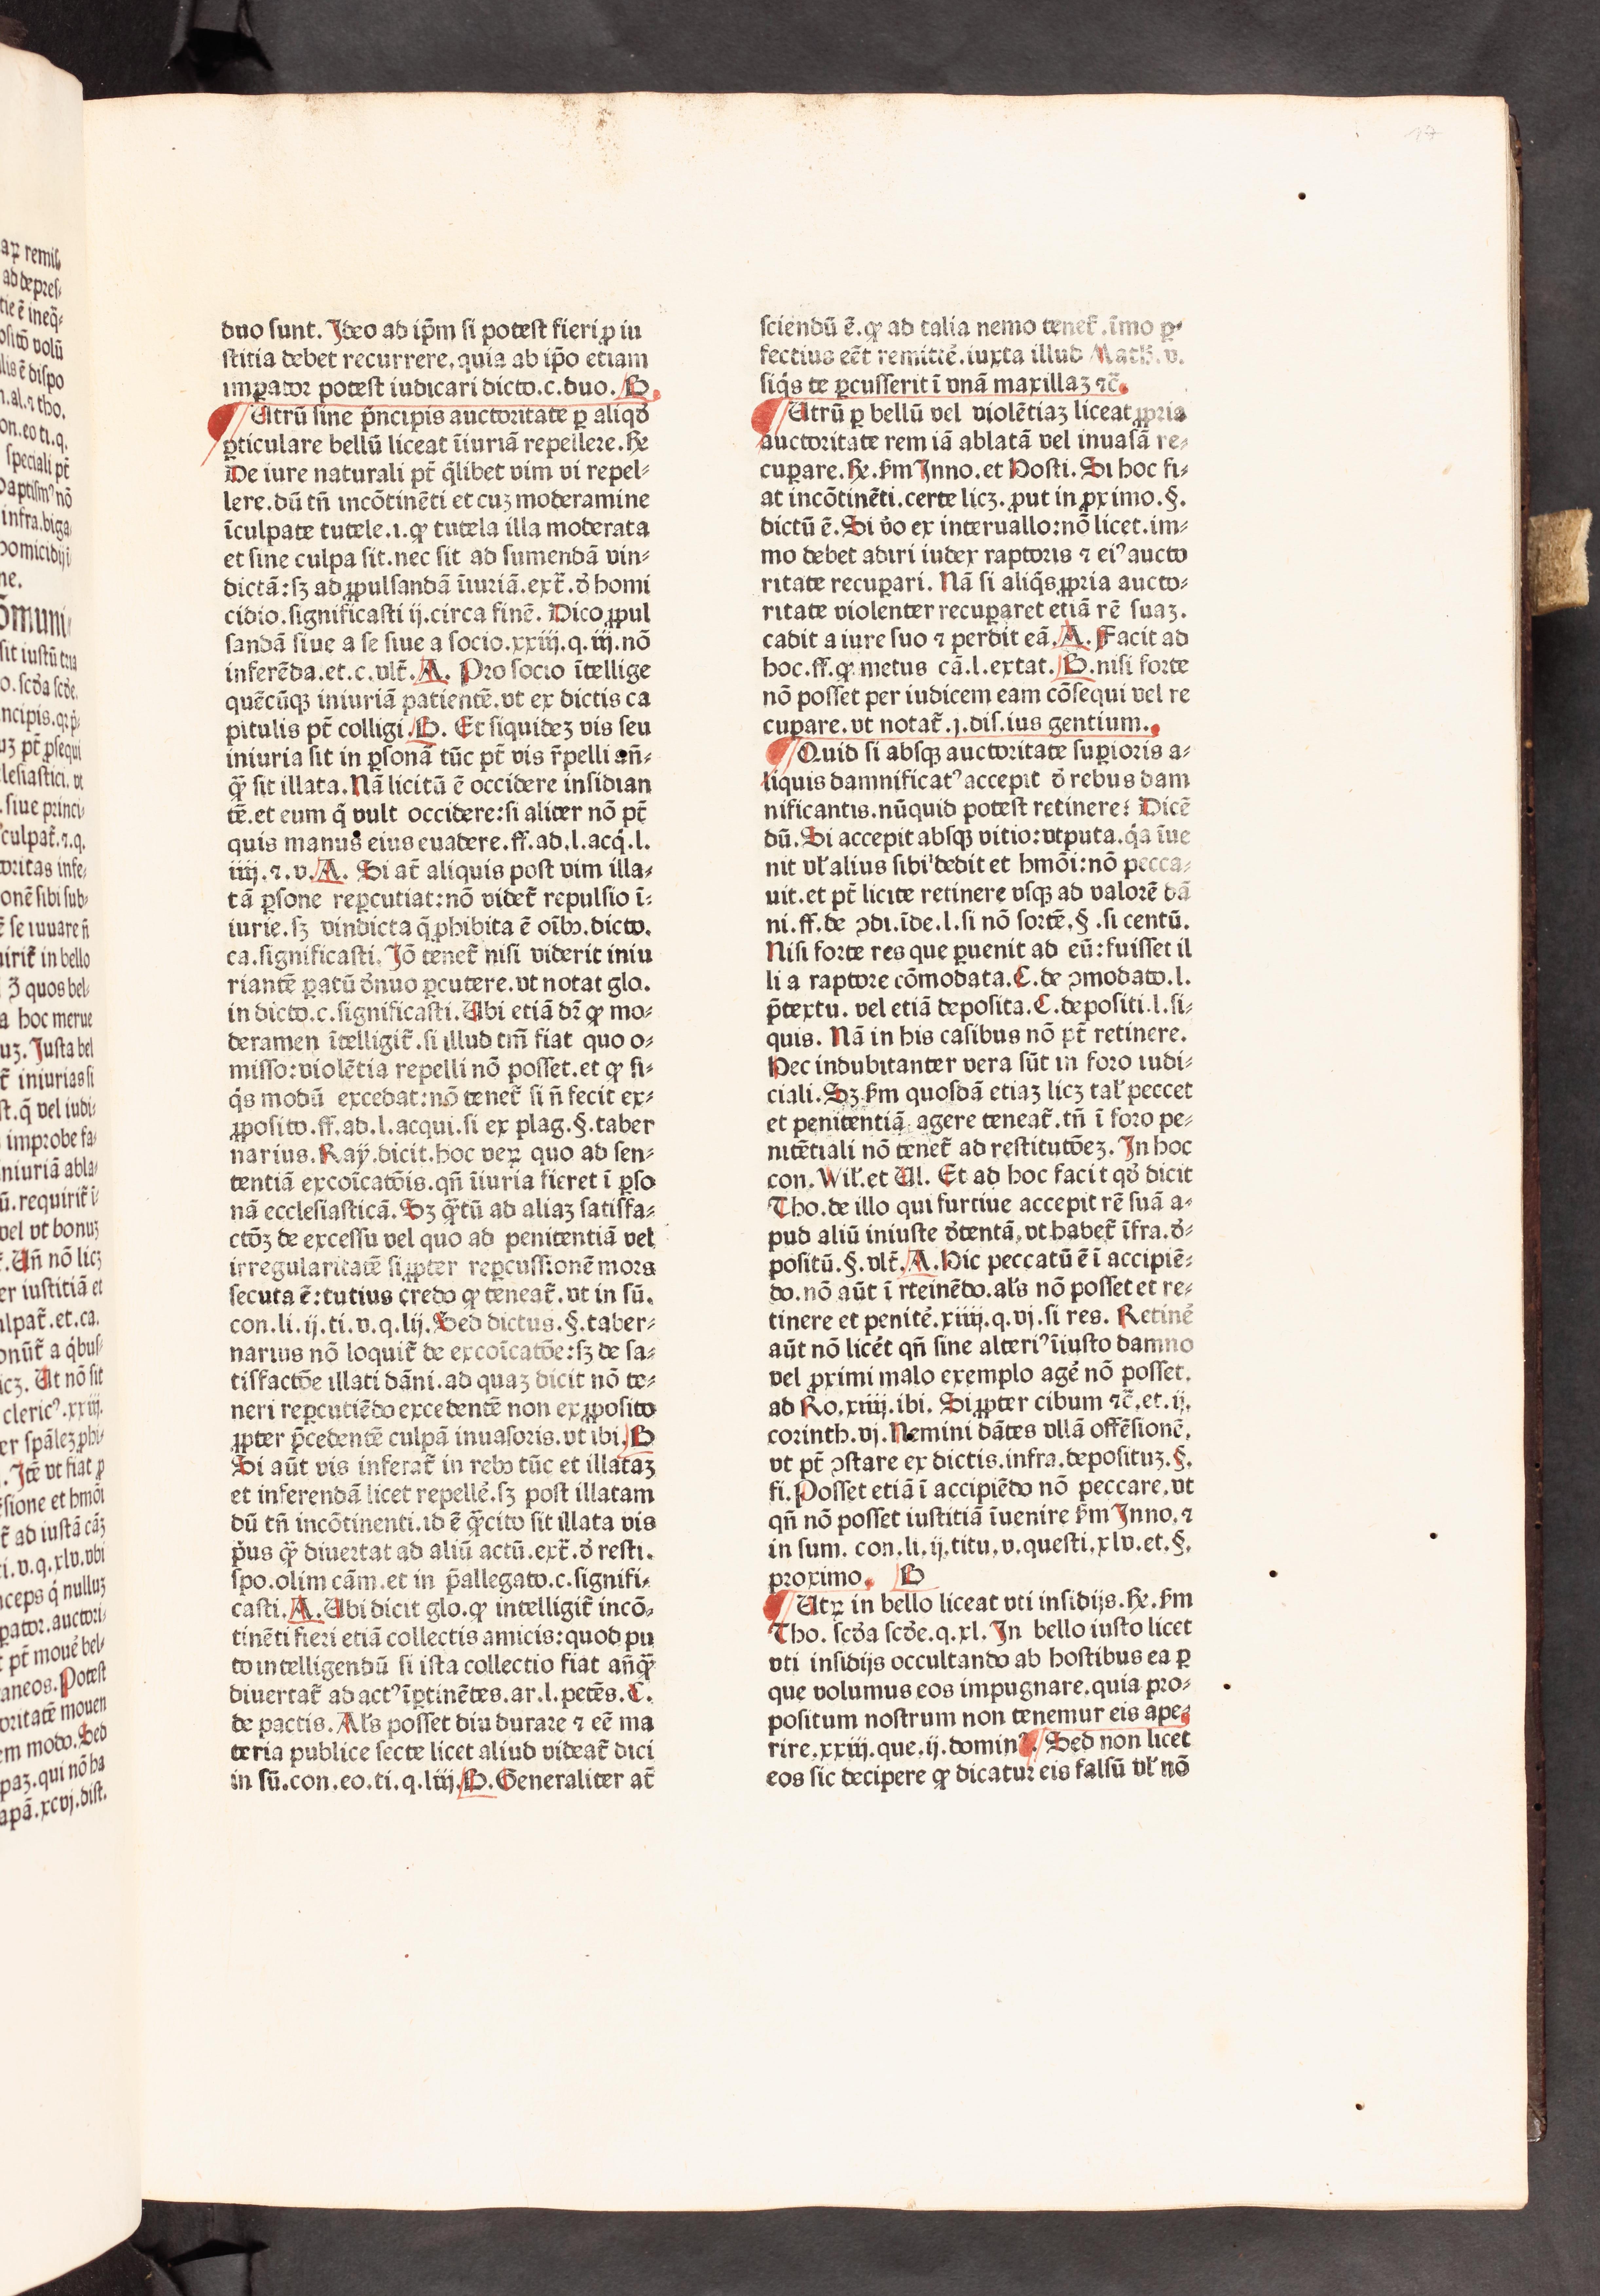 duo sunt. Ideo ad ip̄m si potest fieri ꝓ iu
stitia debet recurrere. quia ab ip̄o etiam
imꝑator potest iudicari dicto.c.duo. B.
Utrū sine pͥncipis auctoritate ꝑ aliqđ
ꝑticulare bellū liceat īiuriā repellere. Rͤ
De iure naturali pt̄ q̄libet vim vi repel⸗
lere. dū tn̄ incōtinēti et cuꝫ moderamine
īculpate tutele.i. ꝙ tutela illa moderata
et sine culpa sit. nec sit ad sumendā vin⸗
dictā: sꝫ ad ꝓpulsandā īiuriā. ext̄. đ homi
cidio. significasti ij. circa finē. Dico ꝓpul
sandā siue a se siue a socio. xxiij. q. iij. nō
inferēda. et. c. vlt̄. A. Pro socio ītellige
quēcūqꝫ iniuriā patientē. vt ex dictis ca
pitulis pt̄ colligi. B. Et siquideꝫ vis seu
iniuria sit in ꝑsonā tūc pt̄ vis r̄pelli an̄⸗
q̄ꝫ sit illata. Nā licitū ē occidere insidian
tē. et eum q̄ vult occidere: si aliter nō pt̄
quis manus eius euadere. ff. ad. l. acq̄. l.
iiij. ⁊. v. A. Si at̄ aliquis post vim illa⸗
tā ꝑsone reꝑcutiat: nō videt̄ repulsio ī⸗
iurie. sꝫ vindicta q̄ ꝓhibita ē oībꝫ. dicto.
ca. significasti. Iō tenet̄ nisi viderit iniu
riantē ꝑatū đnuo ꝑcutere. vt notat glo.
in dicto. c. significasti. Ubi etiā dr̄ ꝙ mo⸗
deramen ītelligit̄. si illud tm̄ fiat quo o⸗
misso: violētia repelli nō posset. et ꝙ si⸗
q̄s modū excedat: nō tenet̄ si n̄ fecit ex⸗
ꝓposito. ff. ad. l. acqui. si ex plag. §. taber
narius. Raÿ. dicit. hoc veꝝ quo ad sen⸗
tentiā excoīcatōis. qn̄ īiuria fieret ī ꝑso
nā ecclesiasticā. Sꝫ q̄ꝫtū ad aliaꝫ satisfa⸗
ctōꝫ de excessu vel quo ad penitentiā vel
irregularitatē si ꝓpter reꝑcussionē mors
secuta ē: tutius credo ꝙ teneat̄. vt in sū.
con. li. ij. ti. v. q. lij. Sed dictus. §. taber⸗
narius nō loquit̄ de excoīcatōe: sꝫ de sa⸗
tisfactōe illati dāni. ad quaꝫ dicit nō te⸗
neri reꝑcutiēdo excedentē non ex ꝓposito
ꝓpter p̄cedentē culpā inuasoris. vt ibi. B
Si aūt vis inferat̄ in rebꝫ tūc et illataꝫ
et inferendā licet repellē. sꝫ post illatam
dū tn̄ incōtinenti. id ē q̄ꝫcito sit illata vis
pͥus q̄ꝫ diuertat ad aliū actū. ext̄. đ resti.
spo. olim cām. et in p̄allegato. c. signifi⸗
casti. A. Ubi dicit glo. ꝙ intelligit̄ incō⸗
tinēti fieri etiā collectis amicis: quod pu
to intelligendū si ista collectio fiat an̄q̄ꝫ
diuertat̄ ad act⁹ īꝑtinētes. ar. l. petēs. C.
de pactis. Al̄s posset diu durare ⁊ eē ma
teria publice secte licet aliud videat̄ dici
in sū. con. eo. ti. q. liij. B. Generaliter at̄
sciendū ē. ꝙ ad talia nemo tenet̄. īmo ꝑ⸗
fectius eēt remittē. iuxta illud Math̄. v.
siq̄s te ꝑcusserit ī vnā maxillaꝫ ⁊c̄.
Utrū ꝑ bellū vel violētiaꝫ liceat ꝓpria
auctoritate rem iā ablatā vel inuasā re⸗
cuꝑare. Rͤ. ẜm Inno. et Hosti. Si hoc fi⸗
at incōtinēti. certe licꝫ. ꝓut in ꝓximo. §.
dictū ē. Si v̄o ex interuallo: nō licet. im⸗
mo debet adiri iudex raptoris ⁊ ei⁹ aucto
ritate recuꝑari. Nā si aliq̄s ꝓpria aucto⸗
ritate violenter recuꝑaret etiā rē suaꝫ.
cadit a iure suo ⁊ perdit eā. A. Facit ad
hoc. ff. ꝙ metus cā. l. extat. B. nisi forte
nō posset per iudicem eam cōsequi vel re
cuꝑare. vt notat̄. j. dis. ius gentium.
Quid si absqꝫ auctoritate suꝑioris a⸗
liquis damnificat⁹ accepit đ rebus dam
nificantis. nūquid potest retinere? Dicē
dū. Si accepit absqꝫ vitio: vtputa. q̄a īue
nit vl̄ alius sibi dedit et hmōi: nō pecca⸗
uit. et pt̄ licite retinere vsqꝫ ad valorē dā
ni. ff. de ꝯdi. īde. l. si nō sortē. §. si centū.
Nisi forte res que ꝑuenit ad eū: fuisset il
li a raptore cōmodata. C. de ꝯmodato. l.
p̄textu. vel etiā deposita. C. depositi. l. si⸗
quis. Nā in his casibus nō pt̄ retinere.
Hec indubitanter vera sūt in foro iudi⸗
ciali. Sꝫ ẜm quosdā etiaꝫ licꝫ tal̄ peccet
et penitentiā agere teneat̄. tn̄ ī foro pe⸗
nitētiali nō tenet̄ ad restitutōeꝫ. In hoc
con. Wil̄. et Ul. Et ad hoc facit qđ dicit
Tho. de illo qui furtiue accepit rē suā a⸗
pud aliū iniuste đtentā, vt habet̄ īfra. đ⸗
positū. §. vlt̄. A. Hic peccatū ē ī accipiē⸗
do. nō aūt ī rteinēdo. al̄s nō posset et re⸗
tinere et penitē. xiiij. q. vj. si res. Retinē
aūt nō licēt qn̄ sine alteri⁹ īiusto damno
vel ꝓximi malo exemplo agē nō posset.
ad Ro. xiiij. ibi. Si ꝓpter cibum ⁊c̄. et. ij.
corinth. vj. Nemini dātes vllā offēsionē.
vt pt̄ ꝯstare ex dictis. infra. deposituꝫ. §.
fi. Posset etiā ī accipiēdo nō peccare. vt
qn̄ nō posset iustitiā īuenire ẜm Inno. ⁊
in sum. con. li. ij. titu. v. questi. xlv. et. §.
proximo. B
Utꝝ in bello liceat vti insidijs. Rͤ. ẜm
Tho. scđa scđe. q. xl. In bello iusto licet
vti insidijs occultando ab hostibus ea ꝑ
que volumus eos impugnare. quia pro⸗
positum nostrum non tenemur eis ape⸗
rire. xxiij. que. ij. domin⁹. Sed non licet
eos sic decipere ꝙ dicatur eis falsū vl̄ nō